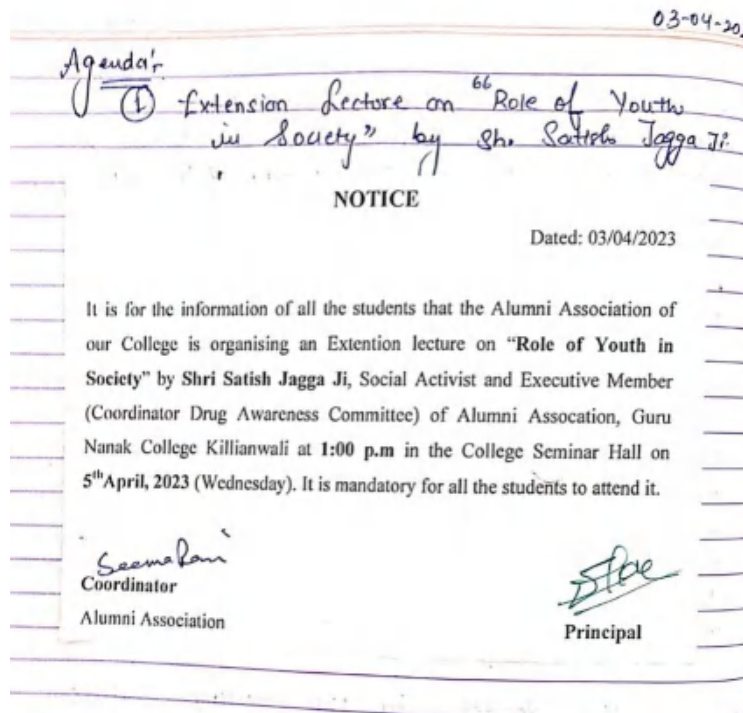 03-04-20
Agenda:-
① Extension Lecture on "Role of Youth
in Society" by Sh. Satish Jagga Ji.
NOTICE
Dated: 03/04/2023
It is for the information of all the students that the Alumni Association of
our College is organising an Extention lecture on “Role of Youth in
Society” by Shri Satish Jagga Ji, Social Activist and Executive Member
(Coordinator Drug Awareness Committee) of Alumni Assocation, Guru
Nanak College Killianwali at 1:00 p.m in the College Seminar Hall on
5th April, 2023 (Wednesday). It is mandatory for all the students to attend it.
Seema Rani
Coordinator
Alumni Association
Principal